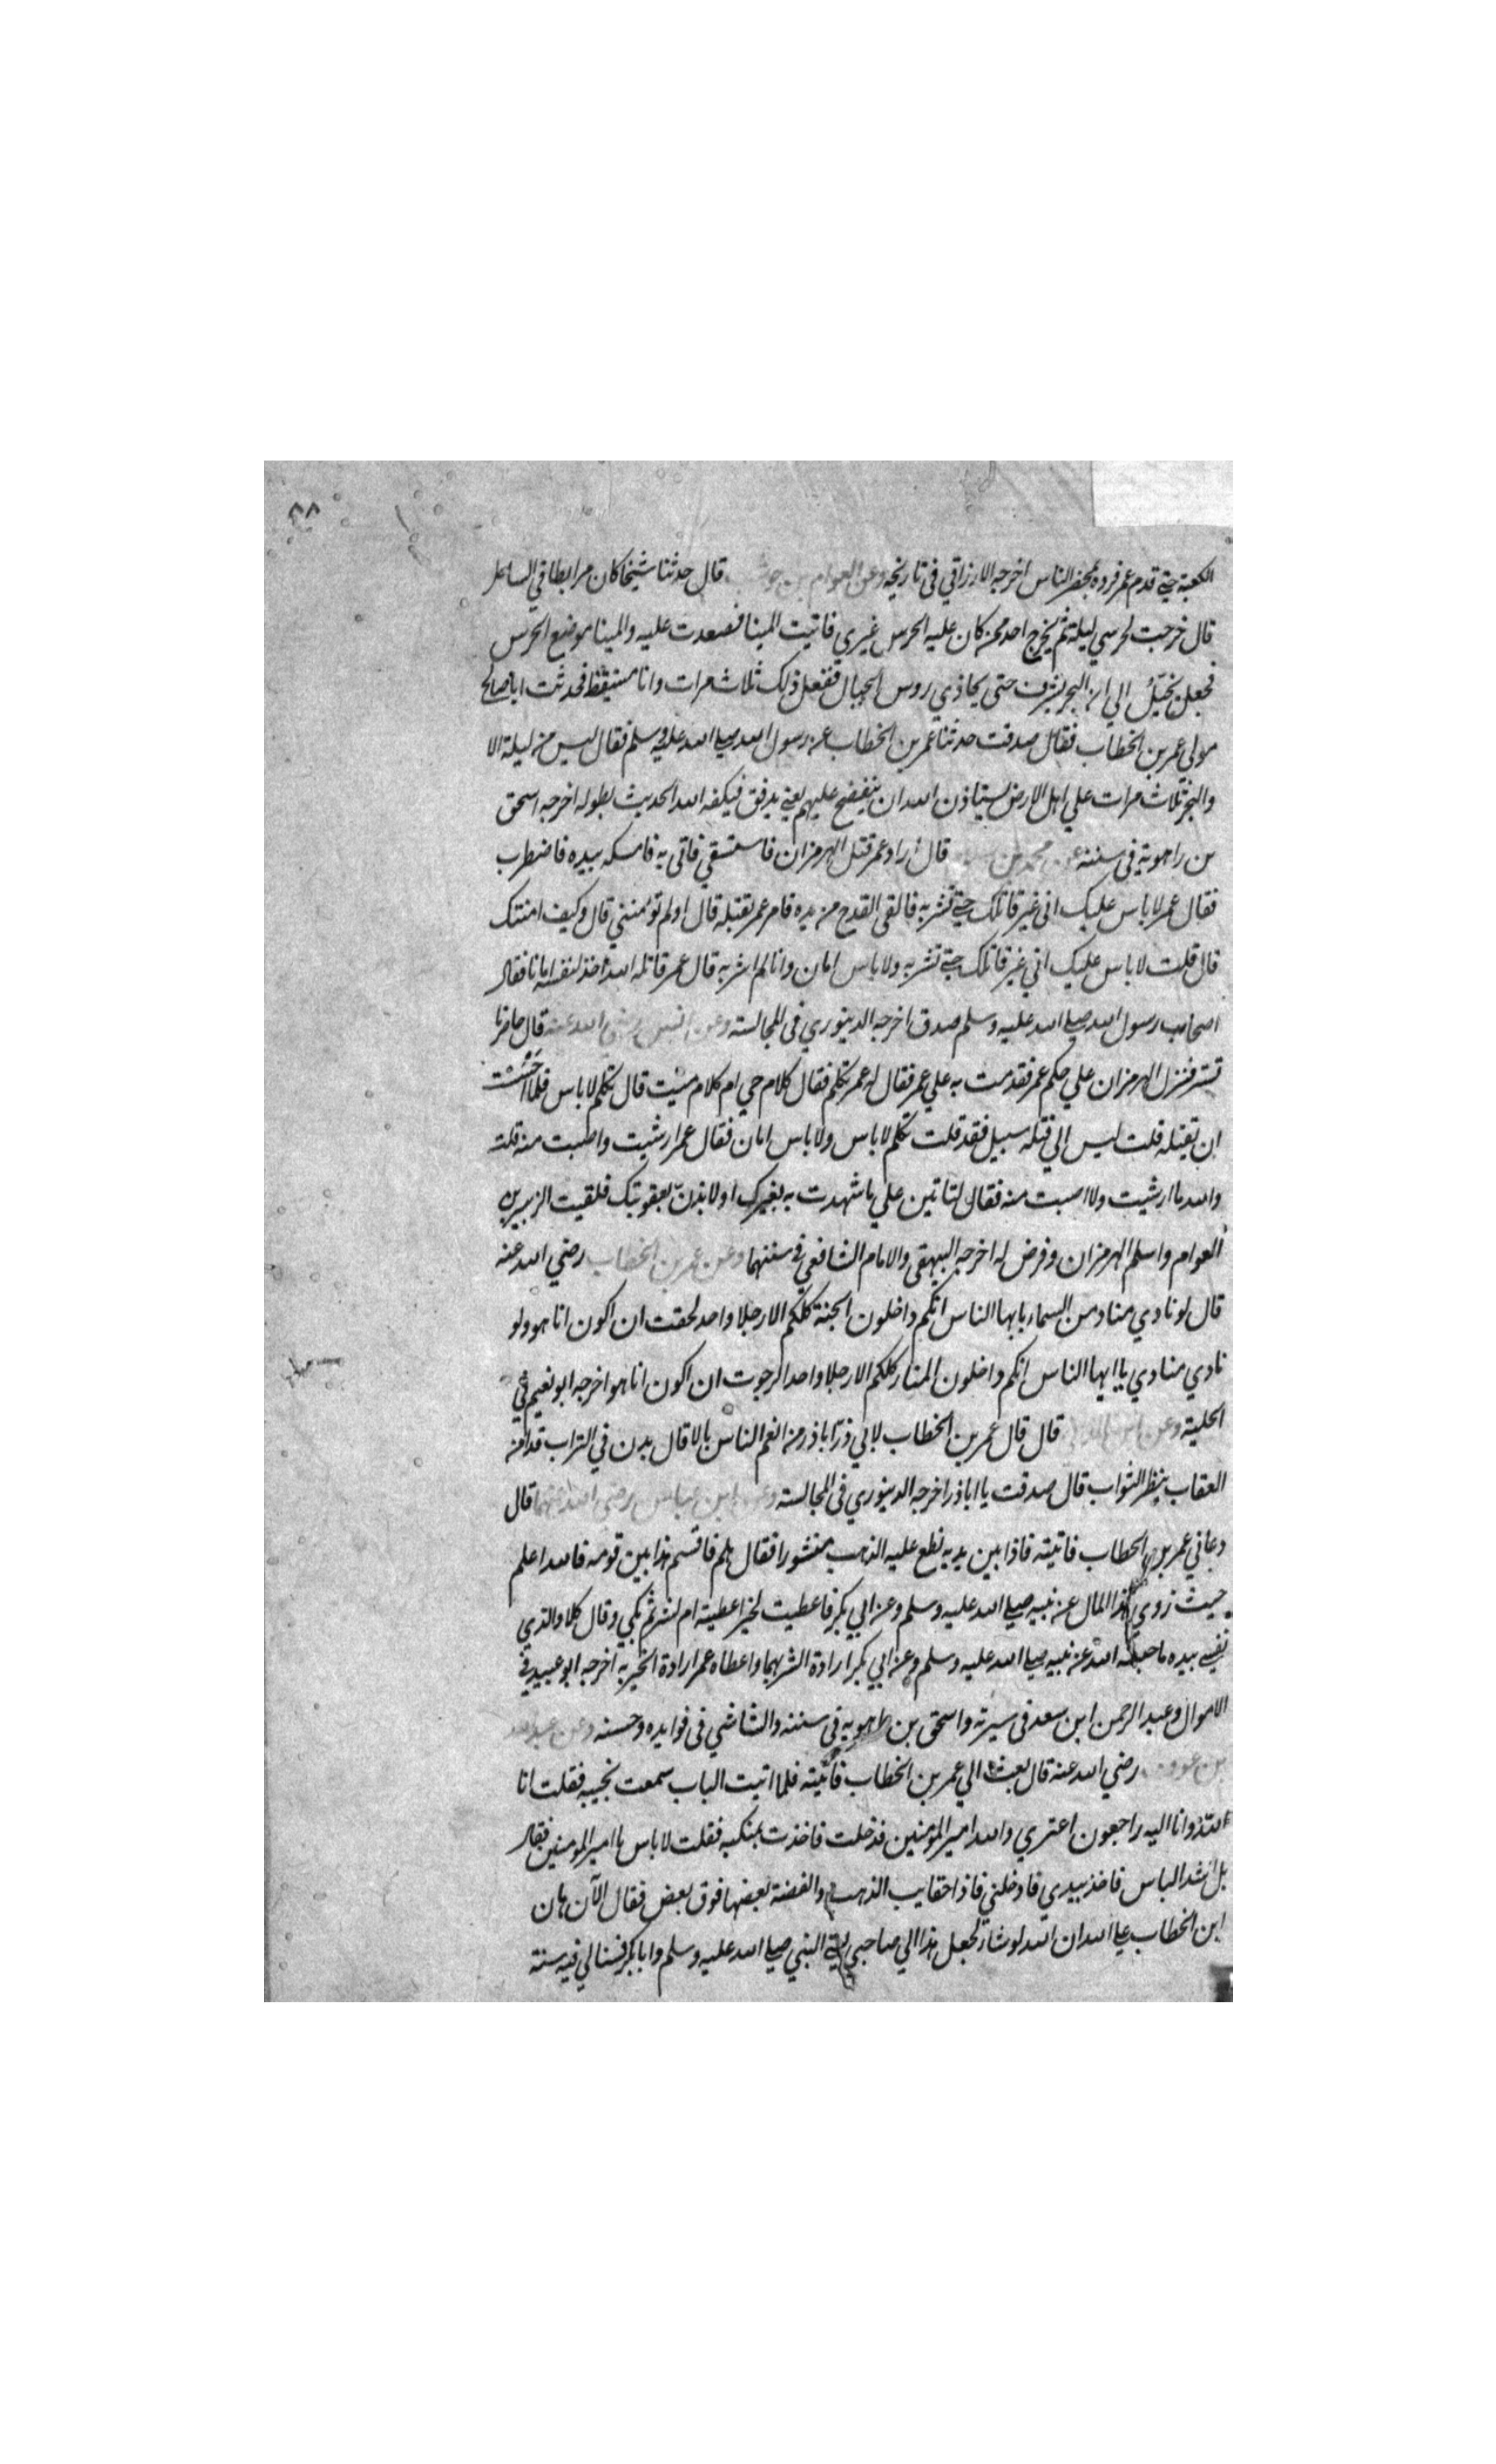 ٨٨
الكعبة حتى قدم عمر فرده بمحضر الناس اخرجه الازراقي في تاريخه وعن العوام بن حوشب قال حدثنا شيخا كان مرابطا في الساحل
قال خرجت لحرسي ليلة لم يخرج احد ممن كان عليه الحرس غيري فاتيت المينا فصعدت عليه والمينا موضع الحرس
فجعل يخيّل الي ان البحر يشرف حتى يحاذي روس الجبال ففعل ذلك ثلاث مرات وانا مستيقظ فحدثت ابا صالح
مولى عمر بن الخطاب فقال صدقت حدثنا عمر بن الخطاب عن رسول الله صلى الله عليه وسلم فقال ليس من ليلة الا
والبحر ثلاث مرات علي اهل الارض يستاذن الله ان ينفضح عليهم يعني يدفق فيكفه الله الحديث بطوله اخرجه اسحق
بن راهوية في سننه عن محمد بن قال اراد عمر قتل الهرمزان فاستسقي فاتى به فامسكه بيده فاضطرب
فقال عمر لا باس عليك اني غير قاتلك حتى تشربه فالقى القدح من يده فامر عمر بقتله قال اولم تؤمنني قال وكيف امنتك
قال قلت لا باس عليك اني غير قاتلك حتى تشربه ولا باس امان وانا لم اشربه قال عمر قاتله الله اخذ لنفسه امانا فقال
اصحاب رسول الله صلى الله عليه وسلم صدق اخرجه الدينوري في المجالسة وعن انس رضي الله عنه قال حاضرنا
تستر فنزل الهرمزان علي حكم عمر فقدمت به علي عمر فقال له عمر تكلم فقال كلام حي ام كلام ميت قال تكلم لا باس فلما خشيت
ان يقتله قلت ليس الي قتله سبيل فقد قلت تكلم لا باس ولا باس امان فقال عمر ارشيت واصبت منه قلت
والله ما ارشيت ولا اصبت منه فقال لتاتين علي ما شهدت به بغيرك او لابدن بعقوبتك فلقيت الزبير بن
العوام واسلم الهرمزان وفرض له اخرجه البيهقي والامام الشافعي في سننهما وعن عمر بن الخطاب رضي الله عنه
قال لو نادي مناد من السماء يا بها الناس انكم داخلون الجنة كلكم الا رجلا واحد لخفت ان اكون انا هو ولو
نادي منادي يا ايها الناس انكم داخلون النار كلكم الا رجلا واحدا لرجوت ان اكون انا هو اخرجه ابو نعيم في
الحلية وعن قال قال عمر بن الخطاب لابي ذرّ اباذر من انعم الناس بالا قال بدن في التراب قد امن
العقاب ينظر الثواب قال صدقت يا اباذر اخرجه الدينوري في المجالسة وعن ابن عباس رضي الله عنهما قال
دعاني عمر بن الخطاب فاتيته فاذا بين يديه نطع عليه الذهب منثورا فقال هلم فاقسم هذا بين قومه فالله اعلم
حيث زوى هذا المال عن نبيه صلى الله عليه وسلم وعن ابي بكر فاعطيت لخير اعطيته ام لشر ثم بكي وقال كلا والذي
نفسي بيده ما حبسه الله عن نبيه صلى الله عليه وسلم وعن ابي بكر ارادة الشر بهما واعطاه عمر ارادة الخير به اخرجه ابو عبيد في
الاموال وعبد الرحمن ابن سعد في سيرته واسحق بن راهويه في سننه والشاشي في فوايده وحسنه وعن عبد الله
بن عوف رضي الله عنه قال بعث الي عمر بن الخطاب فاتيته فلما اتيت الباب سمعت نحيبه فقلت انا
لله وانا اليه راجعون اعتري والله امير المؤمنين فدخلت فاخذت بمنكبه فقلت لا باس يا امير المؤمنين فقال
بل اشد الباس فاخذ بيدي فادخلني فاذا حقايب الذهب والفضة بعضها فوق بعض فقال الآن هان
ابن الخطاب على الله ان الله لو شاء لجعل هذا الي صاحبي يعني النبي صلى الله عليه وسلم وابا بكر فسنا لي فيه سنة